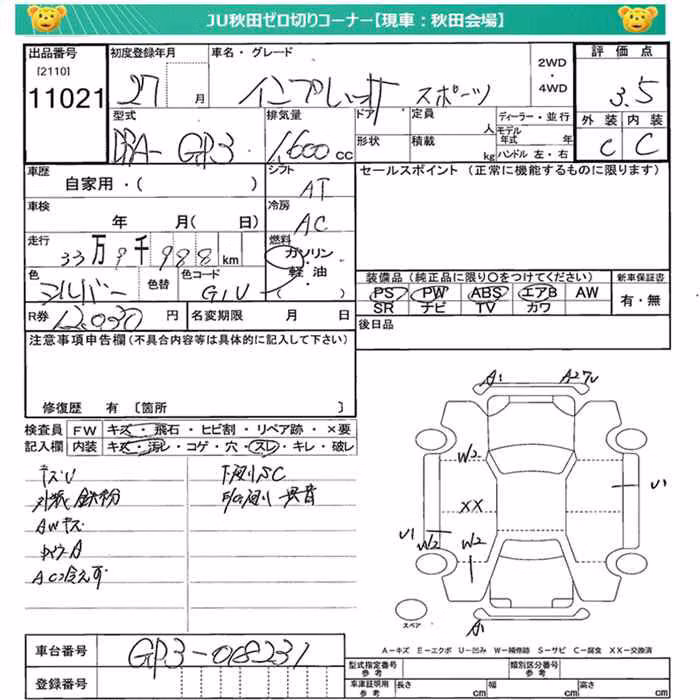 JU秋田ゼロ切りコーナー【現車：秋田会場】
出品番号
[2110]
11021
初度登録年月
27 月
車名・グレード
インプレッサ スポーツ
2WD
・
4WD
評価点
3.5
外装 内装
C C
型式
DBA- GP3
排気量
1,600 cc
ドア
形状
定員 人
積載 kg
ディーラー・並行
モデル年式 年
ハンドル 左・右
車歴
自家用・( )
シフト
AT
セールスポイント (正常に機能するものに限ります)
車検
年 月( 日)
冷房
AC
走行
33万9千988km
燃料
ガソリン
軽油
・
( )
色
シルバー
色替
色コード
G1U
装備品 (純正品に限り○をつけてください)
PS PW ABS エアB AW
SR ナビ TV カワ
新車保証書
有・無
R券 12,030 円
名変期限 月 日
後日品
注意事項申告欄 (不具合内容等は具体的に記入して下さい)
修復歴 有 [箇所 ]
検査員 FW キズ・飛石・ヒビ割・リペア跡・×要
記入欄 内装 キズ・汚レ・コゲ・穴・スレ・キレ・破レ
キズU
外装 鉄粉
AWキズ
下廻りSC
異音
A1
W2
XX
U1
U1
W2
W2
A1
スペア
A－キズ E－エクボ U－凹み W－補修跡 S－サビ C－腐食 XX－交換済
車台番号
GP3-018231
登録番号
型式指定番号
参考
類別区分番号
参考
車庫証明用
参考
長さ cm
幅 cm
高さ cm